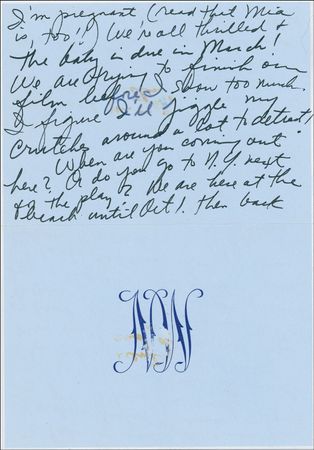 I'm pregnant (read that Mia
is, too!) We're all thrilled &
the baby is due in March!
We are trying to finish our
film before I show too much.
I figure I'll juggle my
crutches around a lot to detract!
When are you coming out
here? Or do you go to N.Y. next
to the play? We are here at the
beach until Oct 1. then back
NGW